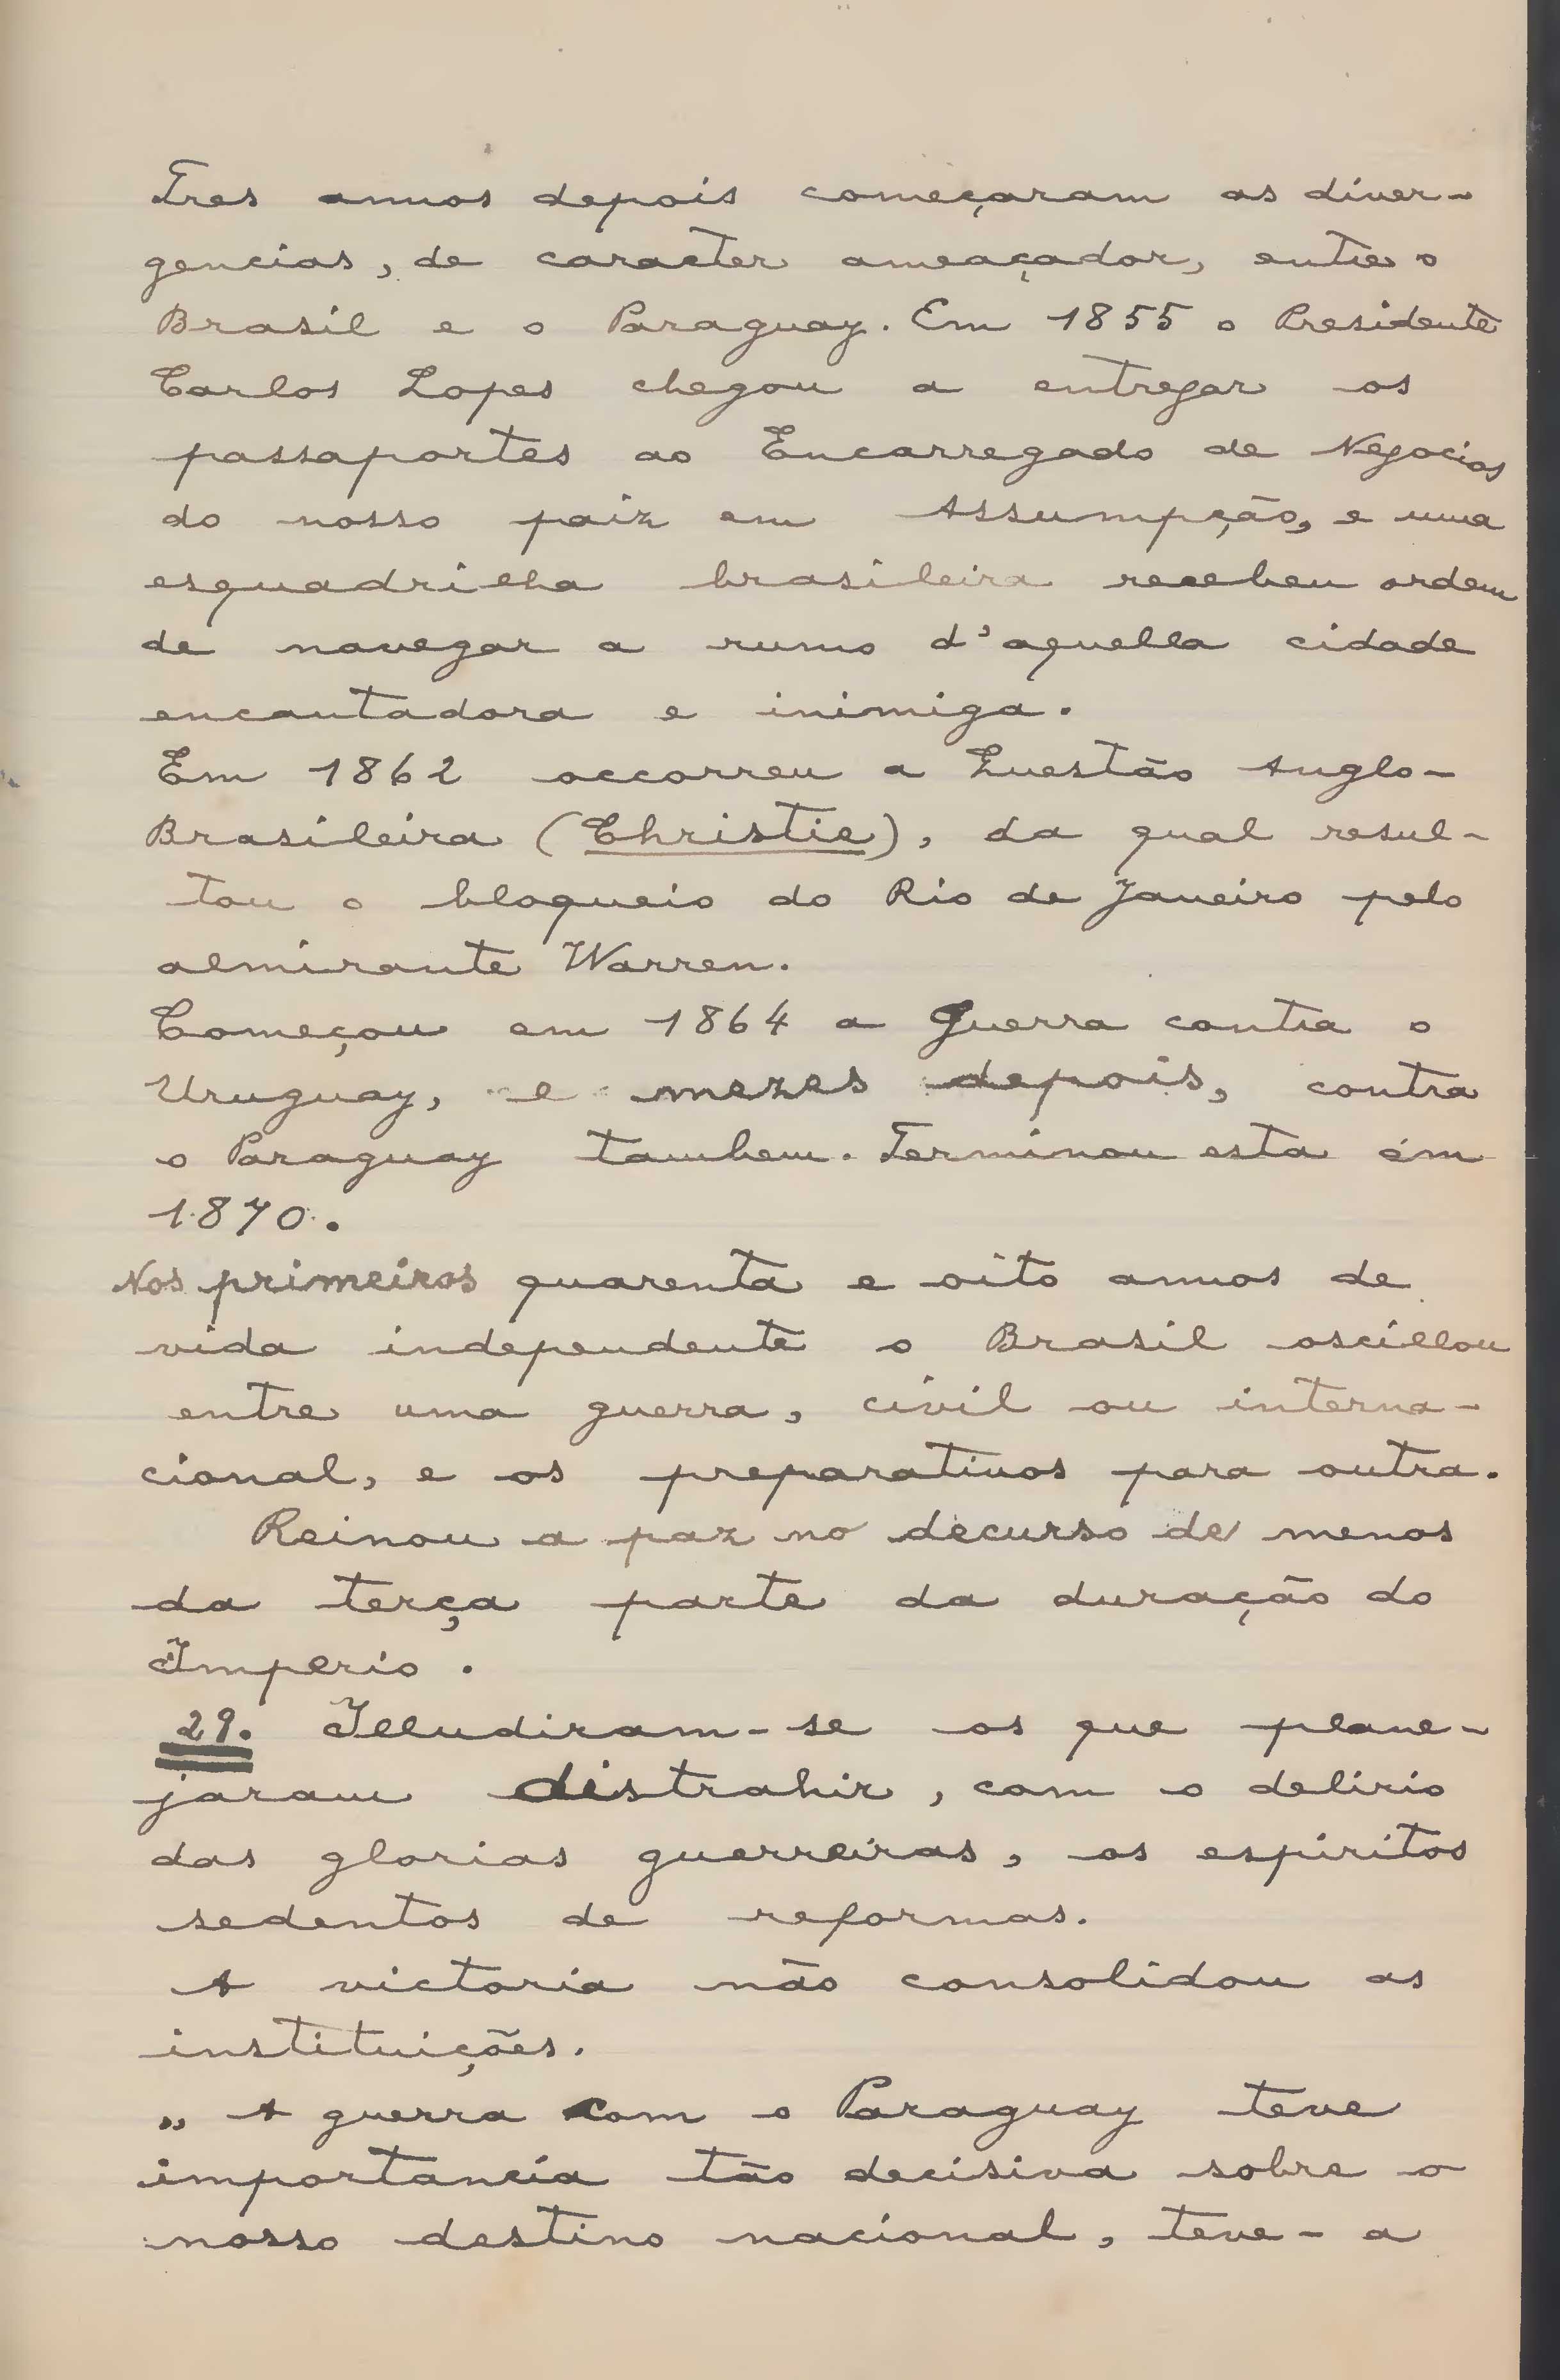 Tres annos depois começaram as diver-
gencias, de caracter ameaçador, entre o
Brasil e o Paraguay. Em 1855 o Presidente
Carlos Lopes chegou a entregar os
passaportes ao Encarregado de Negocios
do nosso paiz em Assumpção, e uma
esquadrilha brasileira recebeu ordem
de navegar a rumo d'aquella cidade
encantadora e inimiga.
Em 1862 occorreu a Questão Anglo-
Brasileira (Christie), da qual resul-
tou o bloqueio do Rio de Janeiro pelo
almirante Warren.
Começou em 1864 a Guerra contra o
Uruguay, e mezes depois, contra
o Paraguay tambem. Terminou esta em
1870.
Nos primeiros quarenta e oito annos de
vida independente o Brasil oscillou
entre uma guerra, civil ou interna-
cional, e os preparativos para outra.
Reinou a paz no decurso de menos
da terça parte da duração do
Imperio.
29. Illudiram-se os que plane-
jaram distrahir, com o delirio
das glorias guerreiras, os espiritos
sedentos de reformas.
A victoria não consolidou as
instituições.
„ A guerra com o Paraguay teve
importancia tão decisiva sobre o
nosso destino nacional, teve-a